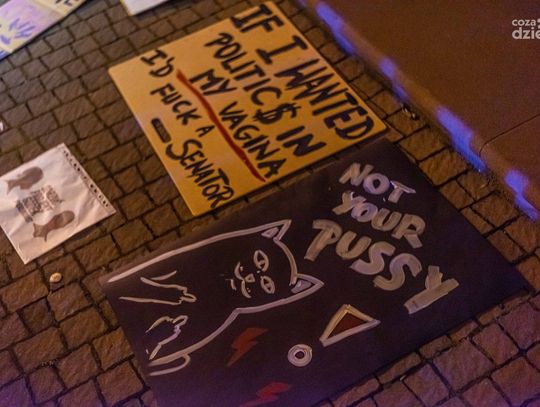 IF I WANTED
POLITIC$ IN
MY VAGINA
I'D FUCK A
SENATOR
NOT
YOUR
PUSSY
!
coza
dzie